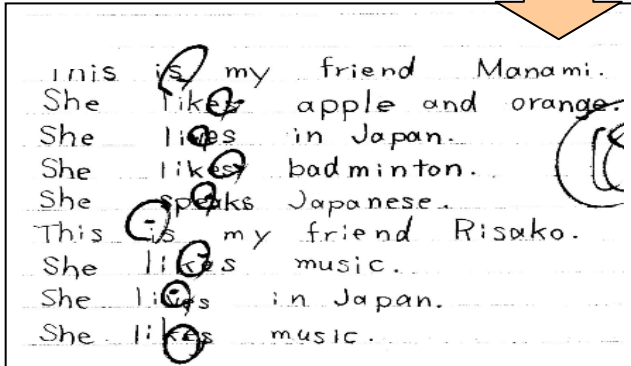 This is my friend Manami.
She likes apple and orange.
She lives in Japan.
She likes badminton.
She speaks Japanese.
This is my friend Risako.
She likes music.
She lives in Japan.
She likes music.